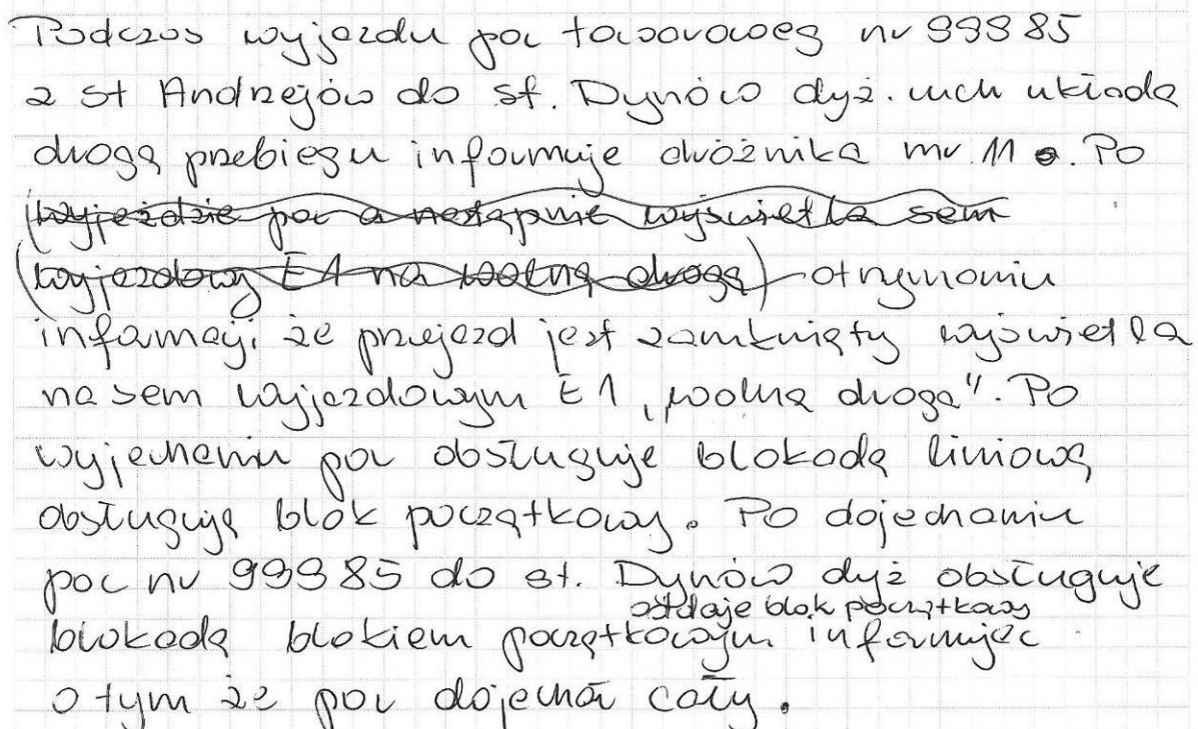 Podczas wyjazdu poc towarowego nr 99985
z st Andrzejów do st. Dynów dyż. ruch układa
drogę przebiegu informuje dróżnika nr 11. Po
(wyjeździe poc a następnie wyświetla sem
wyjazdowy E1 na wolną drogę) otrzymaniu
informacji że przejazd jest zamknięty wyświetla
na sem wyjazdowym E1 „wolną drogę". Po
wyjechaniu poc obsługuje blokadę liniową
obsługują blok początkowy. Po dojechaniu
poc nr 99985 do st. Dynów dyż obsługuje
oddaje blok początkowy
blokadę blokiem początkowym informując
o tym że poc dojechał cały.